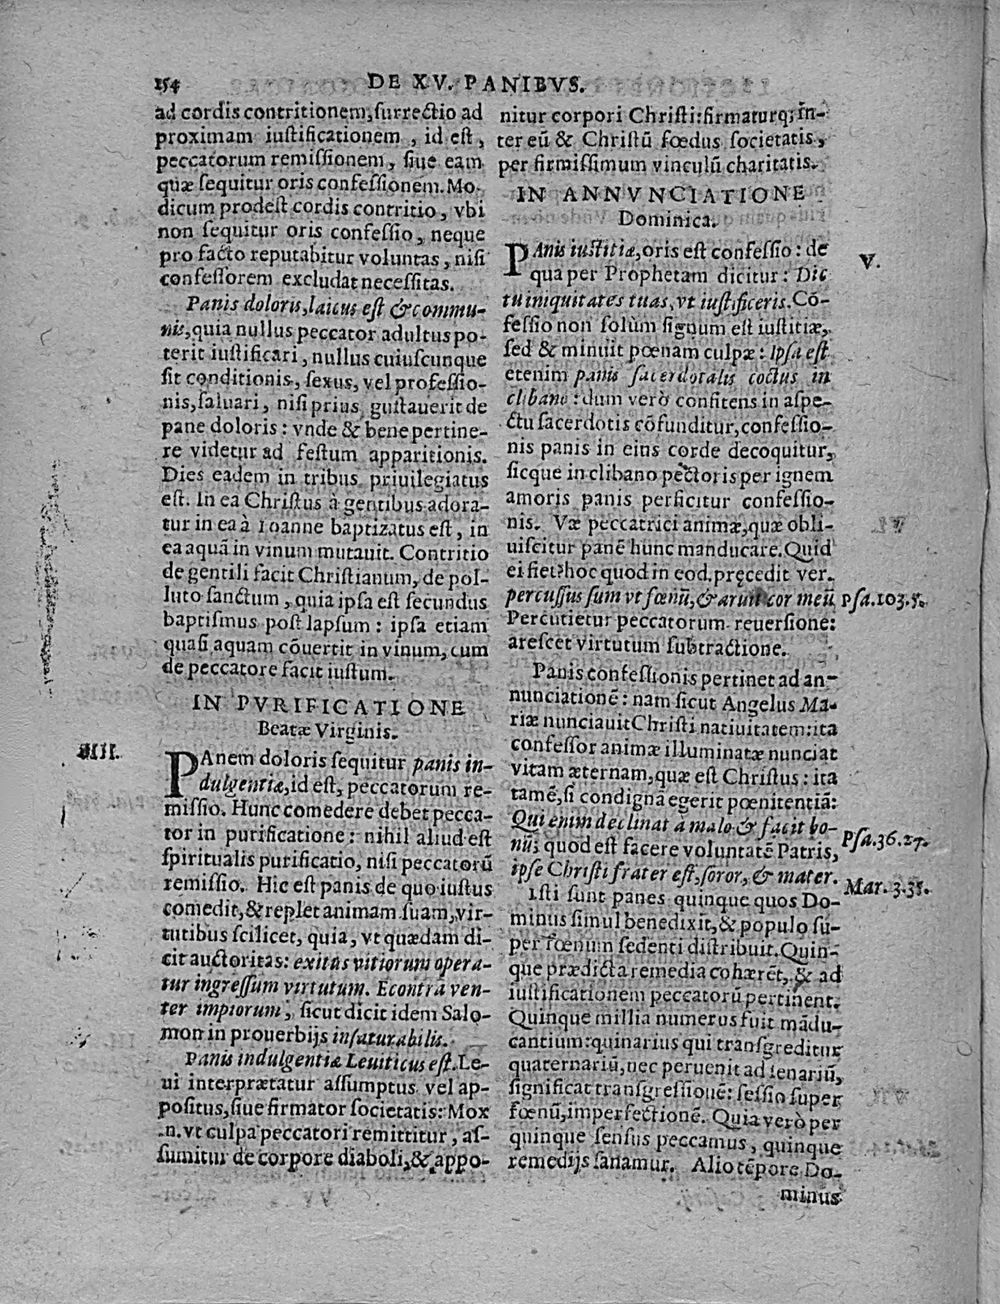 154 DE XV. PANIBVS.
ad cordis contritionem, surrectio ad
proximam iustificationem, id est,
peccatorum remissionem, siue eam
quæ sequitur oris confessionem. Mo-
dicum prodest cordis contritio, vbi
non sequitur oris confessio, neque
pro facto reputabitur voluntas, nisi
confessorem excludat necessitas.
Panis doloris, laicus est & commu-
nis, quia nullus peccator adultus po-
terit iustificari, nullus cuiuscunque
sit conditionis, sexus, vel professio-
nis, saluari, nisi prius gustauerit de
pane doloris: vnde & bene pertine-
re videtur ad festum apparitionis.
Dies eadem in tribus priuilegiatus
est. In ea Christus à gentibus adora-
tur in ea à Ioanne baptizatus est, in
ea aquā in vinum mutauit. Contritio
de gentili facit Christianum, de pol-
luto sanctum, quia ipsa est secundus
baptismus post lapsum: ipsa etiam
quasi aquam cōuertit in vinum, cum
de peccatore facit iustum.
IN PVRIFICATIONE
Beatæ Virginis.
IIII.
PAnem doloris sequitur panis in-
dulgentiæ, id est, peccatorum re-
missio. Hunc comedere debet pecca-
tor in purificatione: nihil aliud est
spiritualis purificatio, nisi peccatorū
remissio. Hic est panis de quo iustus
comedit, & replet animam suam, vir-
tutibus scilicet, quia, vt quædam di-
cit auctoritas: exitus vitiorum opera-
tur ingressum virtutum. Econtra ven-
ter impiorum, sicut dicit idem Salo-
mon in prouerbijs insaturabilis.
Panis indulgentiæ Leuiticus est. Le-
ui interprætatur assumptus vel ap-
positus, siue firmator societatis: Mox
.n. vt culpa peccatori remittitur, as-
sumitur de corpore diaboli, & appo-
nitur corpori Christi: firmaturq; in-
ter eū & Christū fœdus societatis,
per firmissimum vinculū charitatis.
IN ANNVNCIATIONE
Dominica.
V.
PAnis iustitiæ, oris est confessio: de
qua per Prophetam dicitur: Dic
tu iniquitates tuas, vt iustificeris. Cō-
fessio non solùm signum est iustitiæ,
sed & minuit pœnam culpæ: Ipsa est
etenim panis sacerdotalis coctus in
clibano: dum verò confitens in aspe-
ctu sacerdotis cōfunditur, confessio-
nis panis in eius corde decoquitur,
sicque in clibano pectoris per ignem
amoris panis perficitur confessio-
nis. Væ peccatrici animæ, quæ obli-
uiscitur panē hunc manducare. Quid
ei fiet? hoc quod in eod. pręcedit ver.
percussus sum vt fœnū, & aruit cor meū Psa. 103.5.
Percutietur peccatorum reuersione:
arescet virtutum subtractione.
Panis confessionis pertinet ad an-
nunciationē: nam sicut Angelus Ma-
riæ nunciauit Christi natiuitatem: ita
confessor animæ illuminatæ nunciat
vitam æternam, quæ est Christus: ita
tamē, si condigna egerit pœnitentiā:
Qui enim declinat a malo & facit bo- Psa. 36.27.
nū; quod est facere voluntatē Patris,
ipse Christi frater est, soror, & mater. Mar. 3.35.
Isti sunt panes quinque quos Do-
minus simul benedixit, & populo su-
per fœnum sedenti distribuit. Quin-
que prædicta remedia cohærēt, & ad
iustificationem peccatorū pertinent.
Quinque millia numerus fuit mādu-
cantium: quinarius qui transgreditur
quaternariū, nec peruenit ad senariū,
significat transgressionē: sessio super
fœnū, imperfectionē. Quia verò per
quinque sensus peccamus, quinque
remedijs sanamur. Alio tēpore Do-
minus